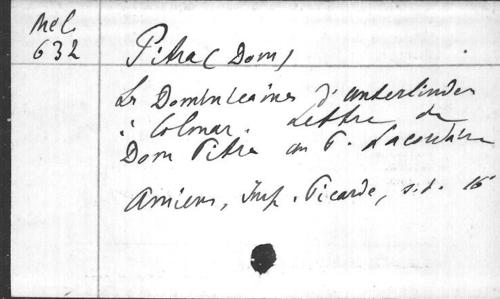 Mél.
632
Pitra (Dom)
Les Dominicaines d'Unterlinden
à Colmar. Lettre de
Dom Pitra au P. Lacordaire
Amiens, Imp. Picarde, s.d. 16°